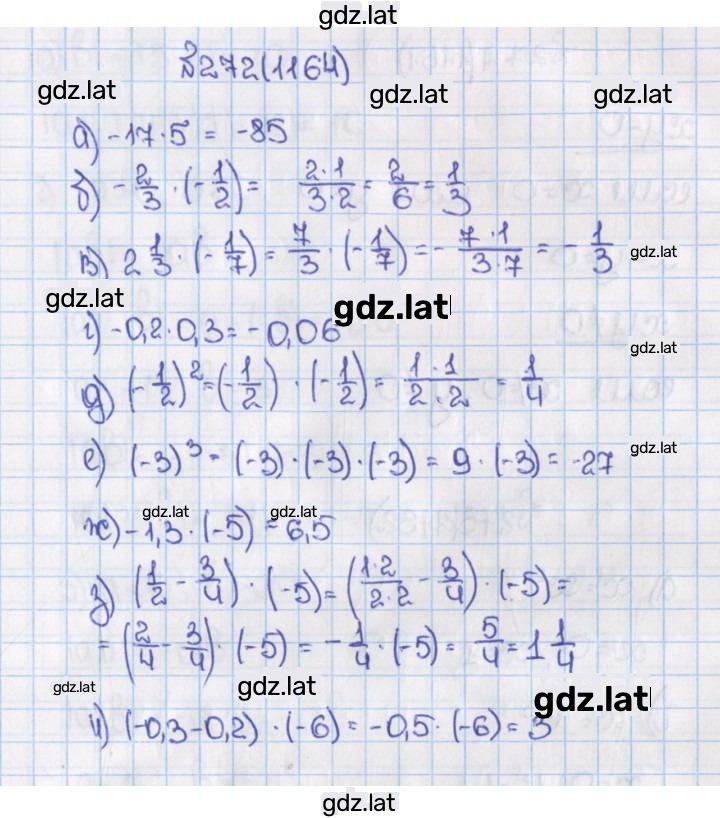 gdz.lat
№272(1164)
gdz.lat gdz.lat gdz.lat
а) -17·5 = -85
б) -2/3 · (-1/2) = 2·1/3·2 = 2/6 = 1/3
в) 2 1/3 · (-1/7) = 7/3 · (-1/7) = - 7·1/3·7 = - 1/3 gdz.lat
gdz.lat gdz.lat
г) -0,2·0,3 = -0,06 gdz.lat
д) (-1/2)² = (-1/2) · (-1/2) = 1·1/2·2 = 1/4
е) (-3)³ = (-3)·(-3)·(-3) = 9·(-3) = -27 gdz.lat
gdz.lat gdz.lat
ж) -1,3·(-5) = 6,5
з) (1/2 - 3/4) · (-5) = (1·2/2·2 - 3/4) · (-5) =
= (2/4 - 3/4) · (-5) = -1/4 · (-5) = 5/4 = 1 1/4
gdz.lat gdz.lat gdz.lat
и) (-0,3-0,2) · (-6) = -0,5 · (-6) = 3
gdz.lat